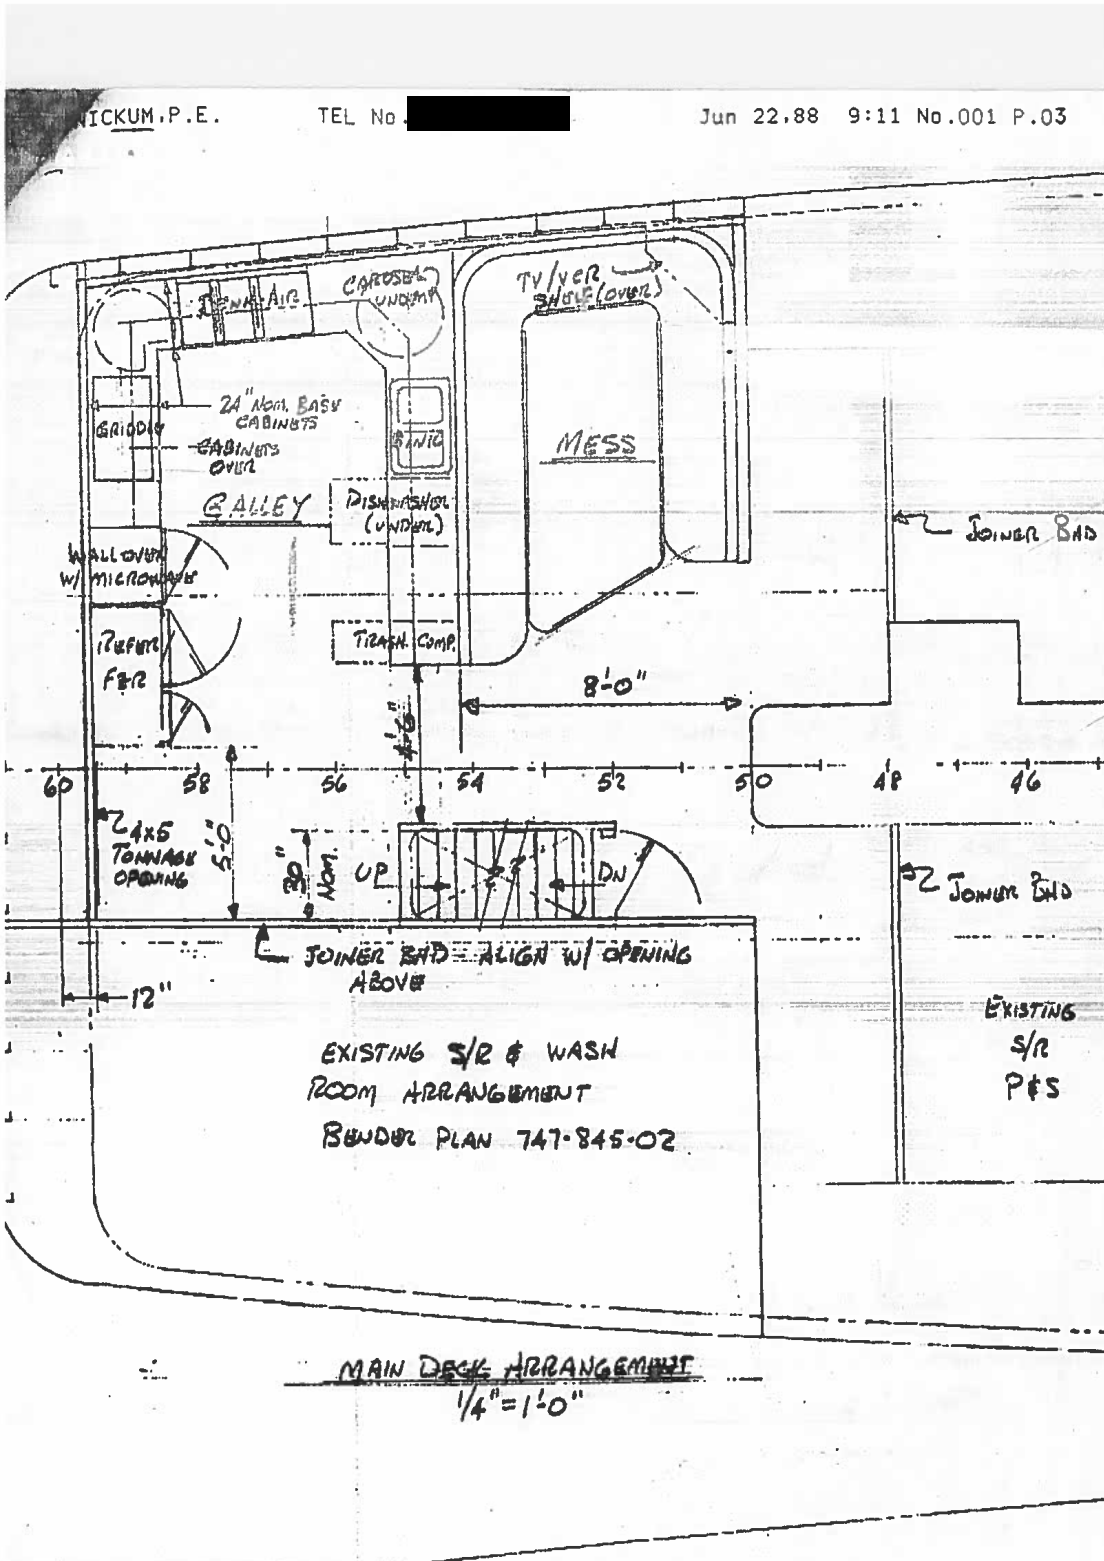 NICKUM, P.E. TEL No. Jun 22,88 9:11 No.001 P.03
JENN-AIR
CAROSEL
UNDER
TV/VCR
SHELF (OVER)
24" NOM. BASE
CABINETS
GRIDDLE
CABINETS
OVER
SINK
MESS
GALLEY
DISHWASHER
(UNDER)
JOINER BHD
WALL OVEN
W/ MICROWAVE
REFER
FER
TRASH COMP.
8'-0"
4'-6"
60 58 56 54 52 50 48 46
4x5
TONNAGE
OPENING
5'-0"
30"
NOM.
UP
DN
JOINER BHD
JOINER BHD - ALIGN W/ OPENING
ABOVE
12"
EXISTING
S/R
P&S
EXISTING S/R & WASH
ROOM ARRANGEMENT
BENDER PLAN 747-845-02
MAIN DECK ARRANGEMENT
1/4" = 1'-0"